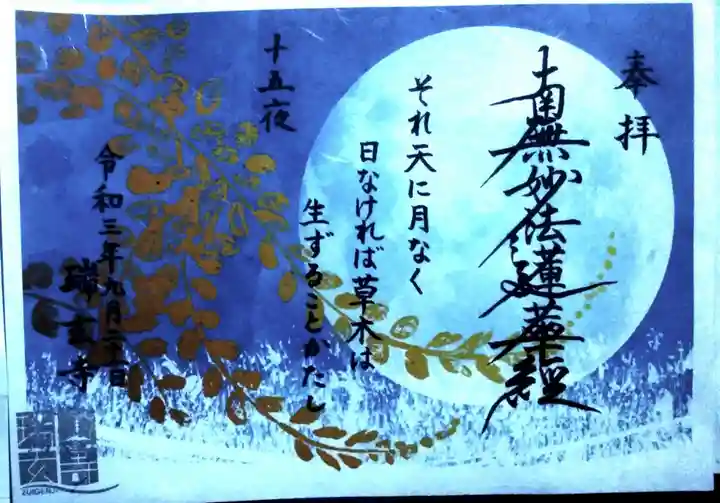 奉拝
南無妙法蓮華経
それ天に月なく
日なければ草木は
生ずることかたし
十五夜
令和三年九月二十一日
瑞玄寺
瑞玄寺
ZUIGENJI